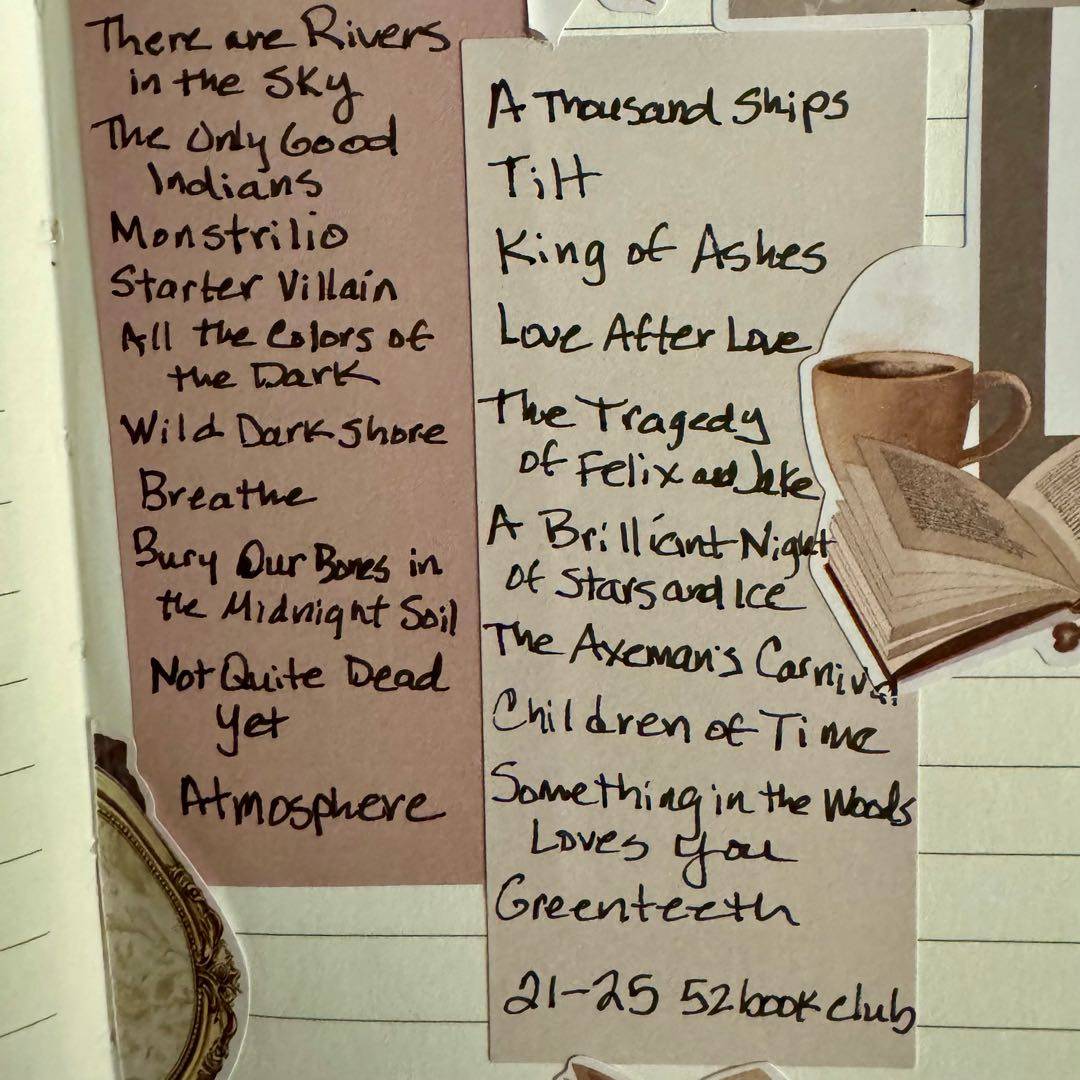 There are Rivers
in the Sky
The Only Good
Indians
Monstrilio
Starter Villain
All the Colors of
the Dark
Wild Dark Shore
Breathe
Bury Our Bones in
the Midnight Soil
Not Quite Dead
Yet
Atmosphere
A Thousand Ships
Tilt
King of Ashes
Love After Love
The Tragedy
of Felix and Jake
A Brilliant Night
of Stars and Ice
The Axeman's Carnival
Children of Time
Something in the Woods
Loves You
Greenteeth
21-25 52 book club